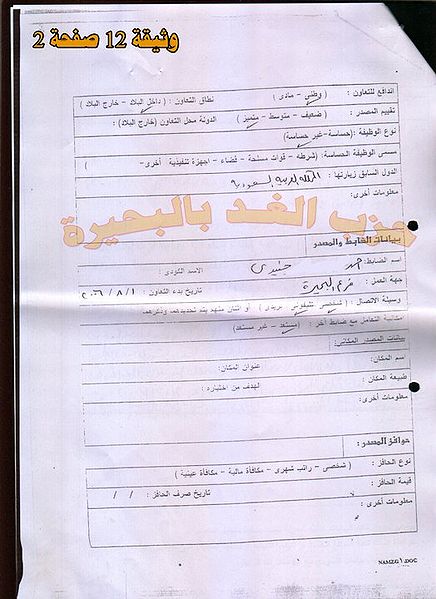 وثيقة 12 صفحة 2
الدافع للتعاون : ( وطني - مادى )
نطاق التعاون : ( داخل البلاد - خارج البلاد )
تقييم المصدر : ( ضعيف - متوسط - متميز )
الدولة محل التعاون (خارج البلاد):
نوع الوظيفة : (حساسة-غير حساسة)
مسمى الوظيفة الحساسة: (شرطه - قوات مسلحة - قضاء - اجهزة تنفيذية أخرى- )
الدول السابق زيارتها : المملكه العربيه السعوديه
معلومات أخرى:
حزب الغد بالبحيرة
بيانات الضابط والمصدر
اسم الضابط: احمد
الاسم الكودى :
جهة العمل: فرع البحيرة
تاريخ بدء التعاون : ٢٠٠٦/٨/١
وسيلة الاتصال : ( شخصي - تليفونى - بريدى ) أو اثنان منهم يتم تحديدهم وذكرهم.
امكانية التعامل مع ضابط أخر : (مستعد - غير مستعد)
بيانات المصدر المكاني:
اسم المكان:
عنوان المكان:
طبيعة المكان :
الهدف من اختياره :
معلومات أخرى:
حوافز المصدر:
نوع الحافز : ( شخصى - راتب شهرى - مكافأة مالية - مكافأة عينية )
قيمة الحافز :
تاريخ صرف الحافز : / /
معلومات أخرى :
NAMZG١.DOC